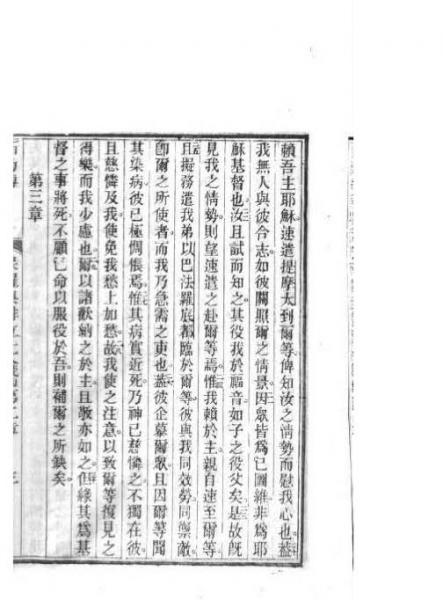 賴吾主耶穌速遣提摩太到爾等俾知汝之情勢而慰我心也蓋
我無人與彼合志如彼關照爾之情景因眾皆爲己圖維非爲耶
穌基督也汝且試而知之其役我於福音如子之役父矣是故既
見我之情勢則望速遣之赴爾等焉惟我賴於主親自速至爾等
且擬務遣我弟以巴法羅底都臨於爾等彼與我同效勞同禦敵
卽爾之所使者而我乃急需之吏也蓋彼企慕爾眾且因爾等聞
其染病彼已極惆悵焉惟其病實近死乃神已慈憐之不獨在彼
且慈憐及我使免我愁上加愁故我使之注意以致爾等復見之
得樂而我少慮也爾以諸歡納之於主且敬亦如之但緣其爲基
督之事將死不顧己命以服役於吾則補爾之所缺矣
第三章